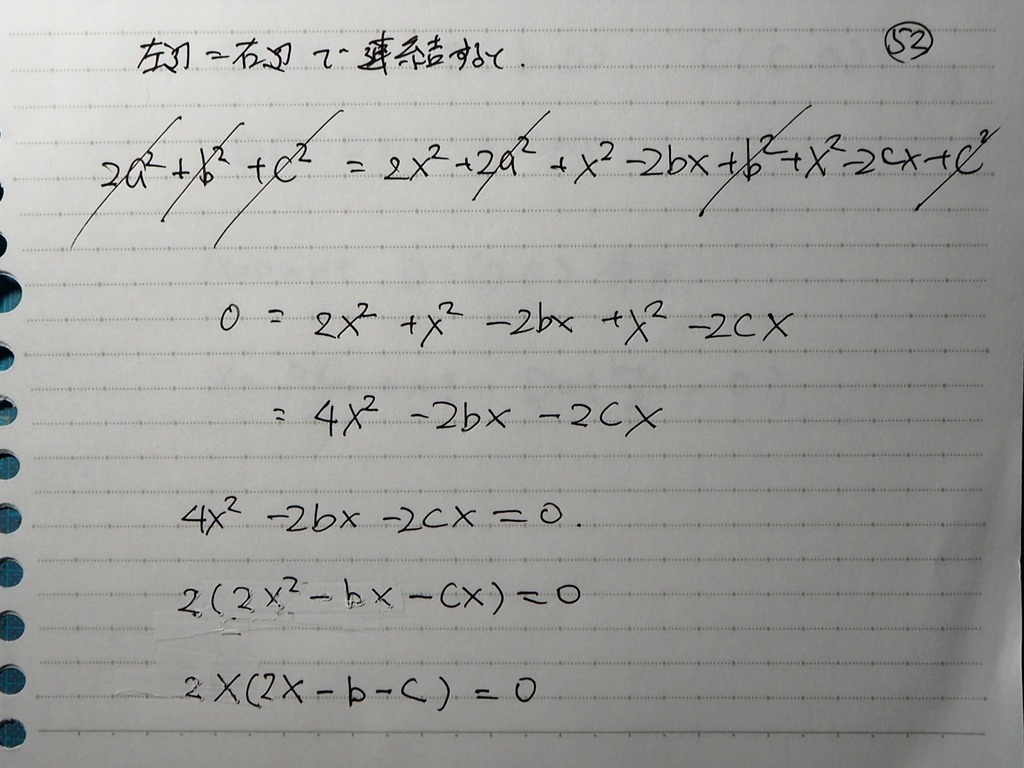 左辺=右辺で連結すると. 52
2a²+b²+c² = 2x²+2a²+x²-2bx+b²+x²-2cx+c²
0 = 2x²+x²-2bx+x²-2cx
= 4x²-2bx-2cx
4x²-2bx-2cx=0.
2(2x²-bx-cx)=0
2x(2x-b-c)=0